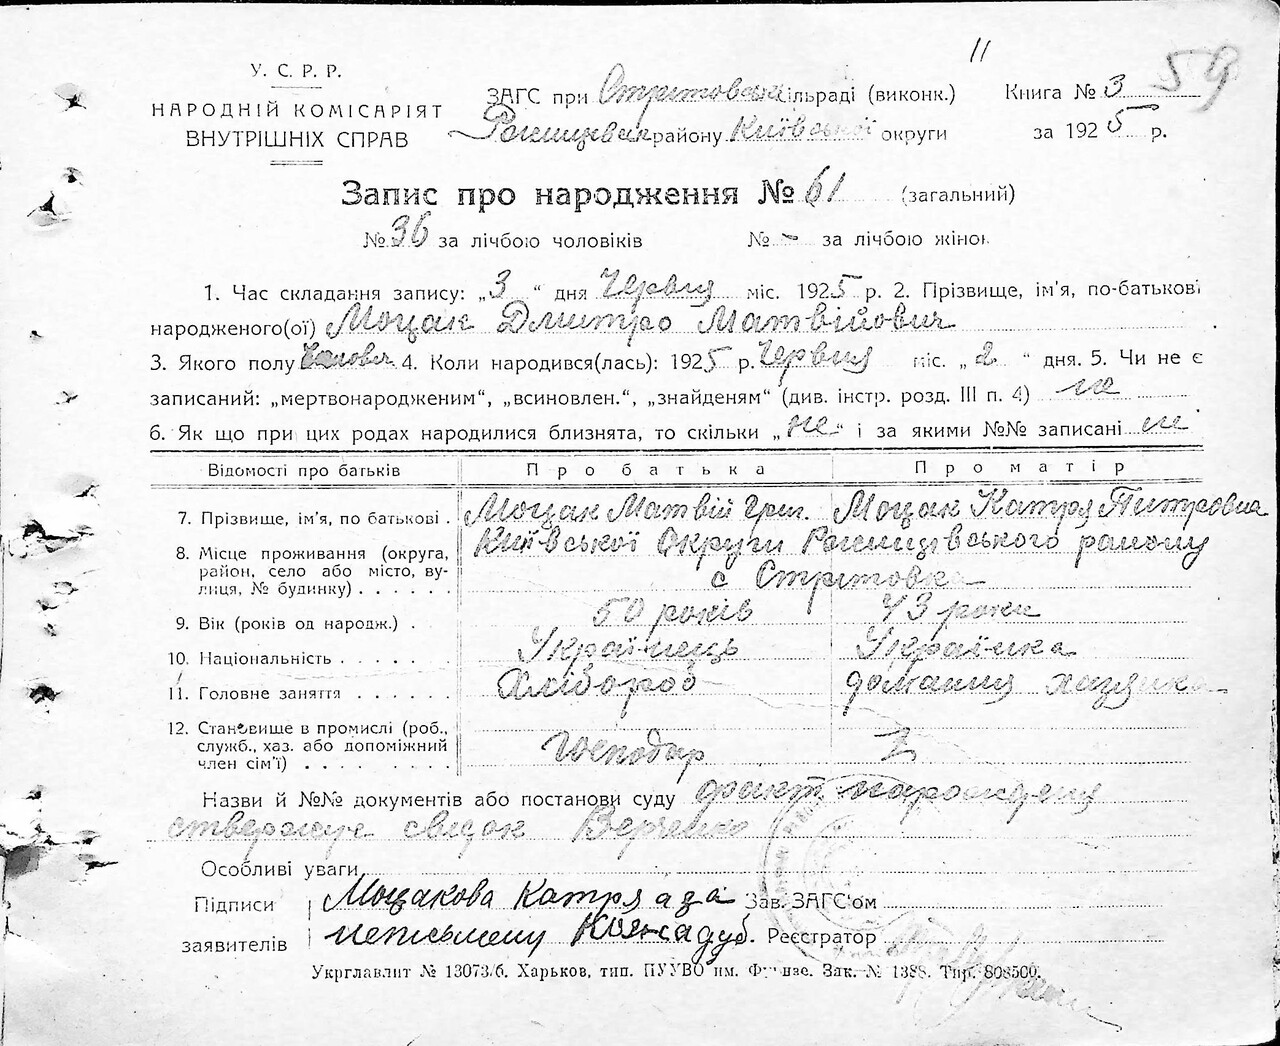 11
59
У. С. Р. Р.
НАРОДНІЙ КОМІСАРІЯТ
ВНУТРІШНІХ СПРАВ
ЗАГС при Стритовськ сільраді (виконк.)
району Київської округи
Книга № 3
за 1925 р.
Запис про народження № 61 (загальний)
№ 36 за лічбою чоловіків № – за лічбою жінок
1. Час складання запису: „3“ дня Червня міс. 1925 р. 2. Прізвище, ім'я, по-батькові
народженого(ої) Моцак Дмитро Матвійович
3. Якого полу Чоловіч 4. Коли народився(лась): 1925 р. Червня міс. „2“ дня. 5. Чи не є
записаний: „мертвонародженим“, „всиновлен.“, „знайденям“ (див. інстр. розд. III п. 4) не
6. Як що при цих родах народилися близнята, то скільки „не“ і за якими №№ записані не
Відомості про батьків Про батька Про матір
7. Прізвище, ім'я, по батькові . Моцак Матвій Григ. Моцак Катря Питровна
8. Місце проживання (округа, район, село або місто, вулиця, № будинку) . . . . . . Київської Округи Рогшицівського району
с Стритовка
9. Вік (років од народж.) . 50 років 43 роки
10. Національність . . . . . Українець Українка
11. Головне заняття . . . . . . Хлібороб домашня хазяйка
12. Становище в промислі (роб., служб., хаз. або допоміжний член сім'ї) . . . . . . . . Господар
Назви й №№ документів або постанови суду факт народження
ствержує свідок
Особливі уваги
Підписи заявителів Моцакова Катря а за
неписьмену
Зав. ЗАГС'ом
Реєстратор
Укрглавлит № 13073/б. Харьков, тип. ПУУВО им. Фрунзе. Зак. № 1388. Тир. 808500.